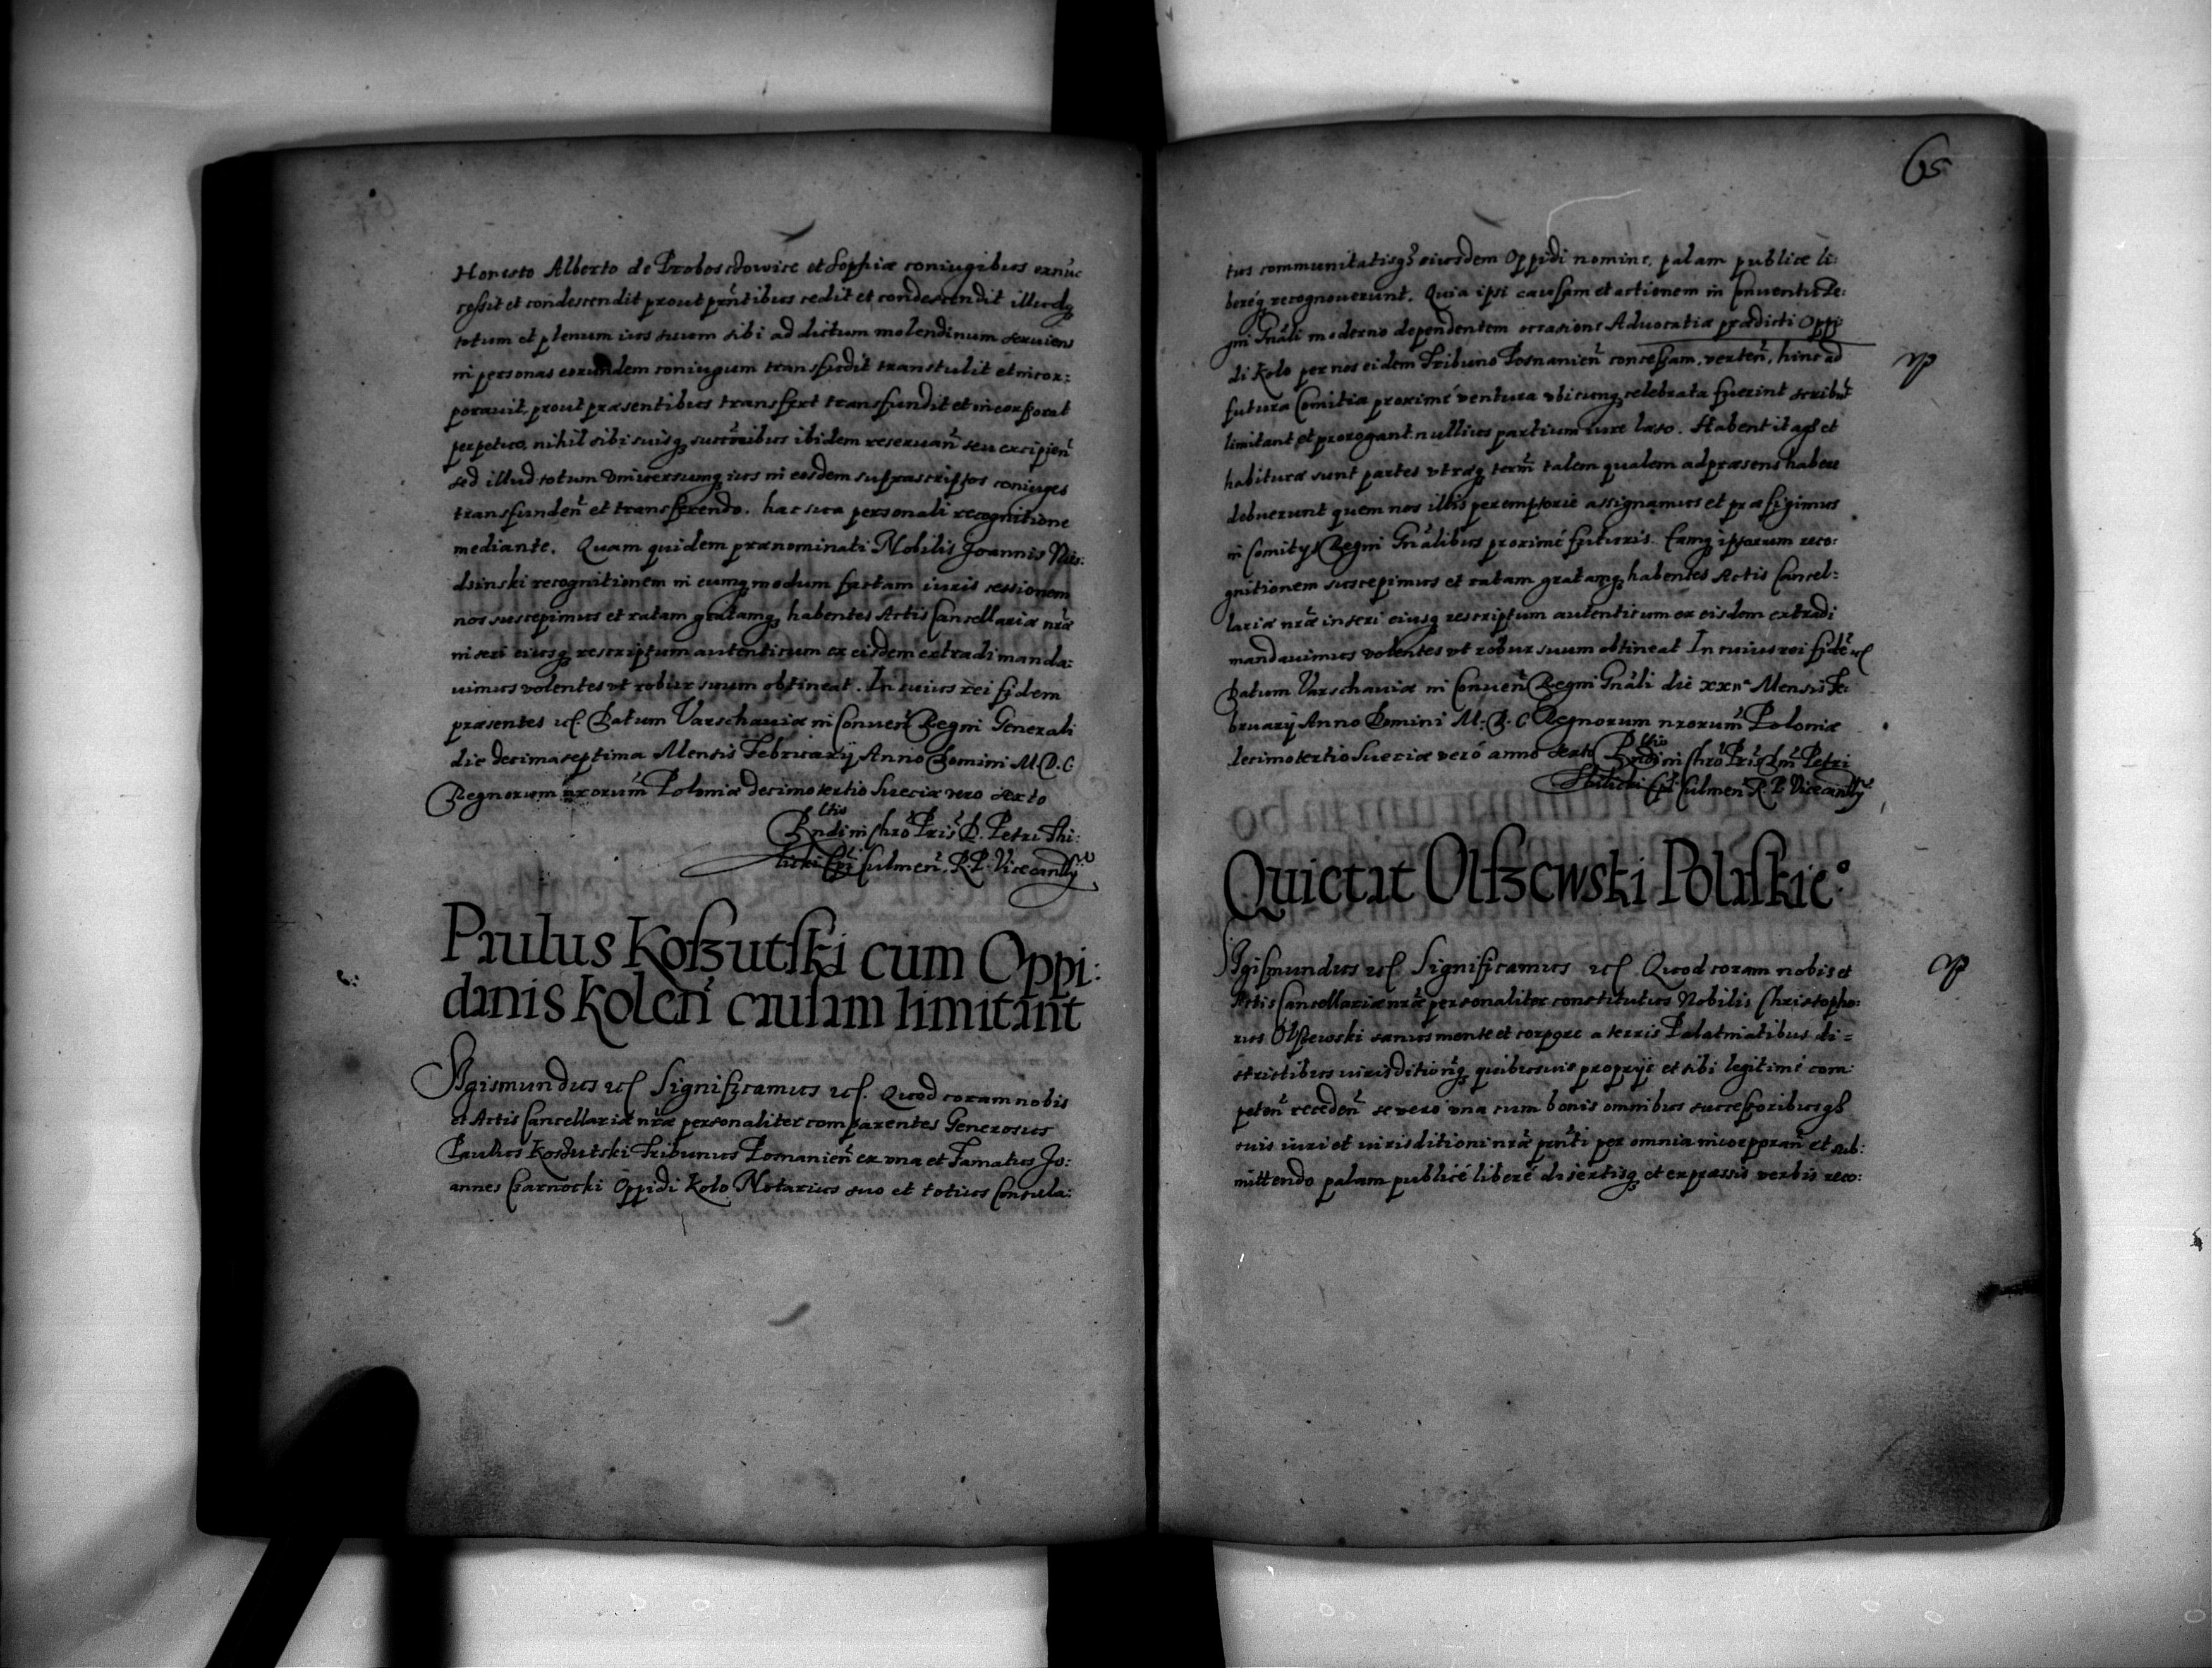 Honesto Alberto de Proboscdowice et Sophiæ coniugibus exnūc
cessit et condescendit prout pr̄ntibus cedit et condescendit illudq3
totum et plenum ius suum sibi ad dictum molendinum seruiens
in personas eorundem coniugum transfudit transtulit et incor:
porauit, prout præsentibus transfert transfundit et incorporat
perpetuo, nihil sibi suisq3 succ̄ribus ibidem reseruan̄ seu excipien̄
sed illud totum vniuersumq3 ius in eosdem suprascriptos coniuges
transfunden̄ et transferendo. hac sua personali recognitione
mediante. Quam quidem prænominati Nobilis Joannis
dzinski recognitionem in eumq3 modum factam iuris cessionem
nos suscepimus et ratam gratamq3 habentes Actis Cancellariæ nr̄æ
inseri eiusq3 rescriptum autenticum ex eisdem extradi manda:
uimus volentes vt robur suum obtineat. In cuius rei fidem
præsentes etc Datum Varschauiæ in Conuen̄ Regni Generali
die decimaseptima Mensis Februarij Anno Domini M.D.C
Regnorum nrorum̄ Poloniæ decimotertio Sueciæ vero sexto
Rltio
Rndi in Chrō Pris D. Petri Thi:
licki Epī Culmen̄. R.P. Vicecancllrij
Paulus Koszutski cum Oppi:
danis Kolen̄ causam limitant
Sigismundus etc Significamus etc. Quod coram nobis
et Actis Cancellariæ nr̄æ personaliter comparentes Generosus
Paulus Koszutski Tribunus Posnanien̄ ex vna et Famatus Jo:
annes Czarnocki Oppidi Kolo Notarius suo et totius Consula:
65
tus communitatisq3 eiusdem Oppidi nomine, palam publice li:
bereq3 recognouerunt. Quia ipsi causam et actionem in Conuentu Re:
gni Gnāli moderno dependentem occasione Aduocatiæ prædicti Oppi
di Kolo per nos eidem Tribuno Posnanien̄ concessam, verten̄, hinc ad
futura Comitia proximè ventura vbicunq3 celebrata fuerint
limitant et prorogant nullius partium iure læso. Habent itaq3 et
habituræ sunt partes vtræq3 term̄ talem qualem ad præsens habere
debuerunt quem nos illis peremptorie assignamus et præfigimus
in Comitijs Regni Gnālibus proximè futuris. Eamq3 ipsorum reco:
gnitionem suscepimus et ratam gratamq3 habentes Actis Cancel:
lariæ nr̄æ inseri eiusq3 rescriptum autenticum ex eisdem extradi
mandauimus volentes vt robur suum obtineat In cuius rei fidē etc
Datum Varschauiæ in Conuen̄ Regni Gnāli die xxiia Mensis Fe:
bruarij Anno Domini M.D.C Regnorum nrorum̄ Poloniæ
decimotertio Sueciæ verò anno sexto Rltio Rndi in Chrō Pris Dnī Petri
Thilicki Epī Culmen̄ R.P. Vicecancllrij
Quietat Olszewski Poliskie°
Sigismundus etc Significamus etc Quod coram nobis et
Actis Cancellariæ nr̄æ personaliter constitutus Nobilis Christopho:
rus Olszewski sanus mente et corpore a terris Palatinatibus di=
strictibus iurisditionq3 quibusuis proprijs et sibi legitimè com:
peten̄ receden̄ se vero vna cum bonis omnibus successoribusq3
suis iuri et iurisditioni nr̄æ pr̄nti per omnia incorporan̄ et sub:
mittendo palam publicè liberè disertisq3 et expressis verbis reco: